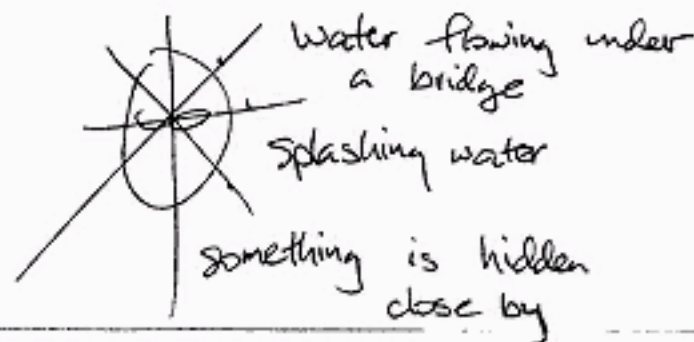 Water flowing under
a bridge
Splashing water
something is hidden
close by